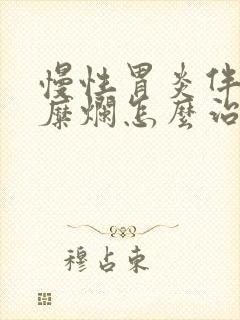 慢性胃炎伴
糜爛怎麼治
穆占東